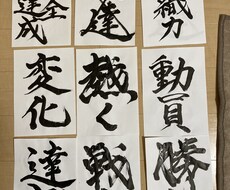 全
達成
達
織力
変化
熱く
動員
達
戦
勝